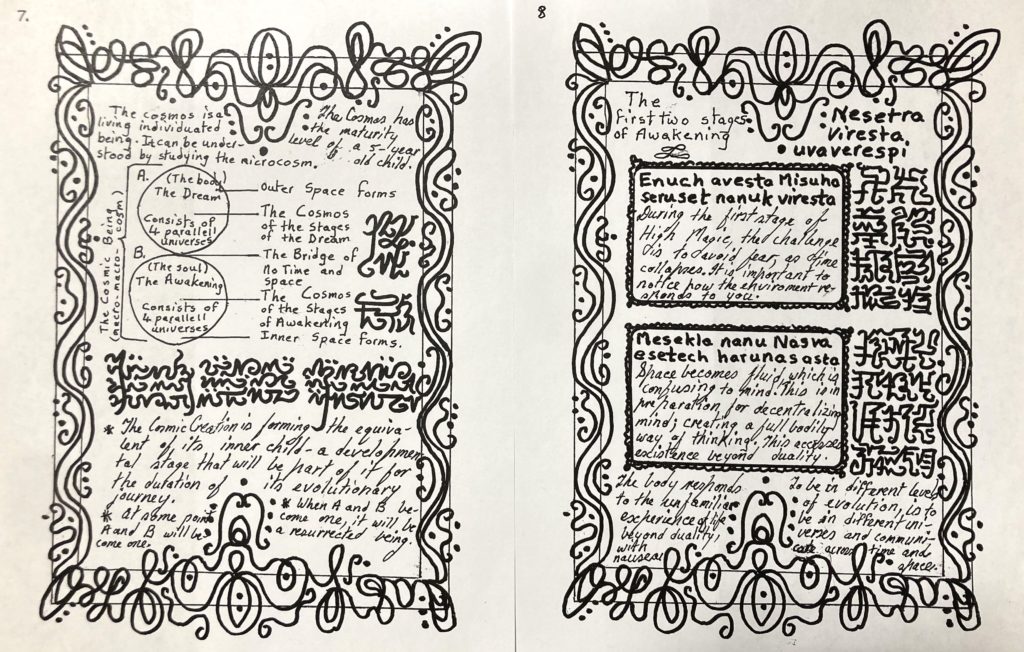 7.
The cosmos is a
living individuated
being. It can be under-
stood by studying the microcosm.
The Cosmos has
the maturity
level of a 5-year
old child.
The Cosmic Being
(macro-macro-cosm)
A.
(The body)
The Dream
Consists of
4 parallell
universes
B.
(The soul)
The Awakening
Consists of
4 parallell
universes
Outer Space forms
The Cosmos
of the stages
of the Dream
The Bridge of
No Time and
space
The Cosmos
of the Stages
of Awakening
Inner Space forms.
* The Cosmic Creation is forming the equiva-
lent of its inner child - a developmen-
tal stage that will be part of it for
the duration of its evolutionary
journey.
* At some point
A and B will be-
come one.
* When A and B be-
come one, it will be
a resurrected being.
8
The
first two stages
of Awakening
Nesetra
viresta
uvaverespi
Enuch avesta Misuha
seruset nanuk viresta
During the first stage of
High Magic, the challenge
is to avoid fear, as time
collapses. It is important to
notice how the enviroment re-
sponds to you.
Mesekla nanu Nasva
esetech harunasasta
Space becomes fluid, which is
confusing to mind. This is in
preparation for decentralizing
mind; creating a full bodily
way of thinking. This accesses
existence beyond duality.
The body responds
to the unfamiliar
experience of life
beyond duality,
with
nausea.
To be in different levels
of evolution, is to
be in different uni-
verses and communi-
cate across time and
space.